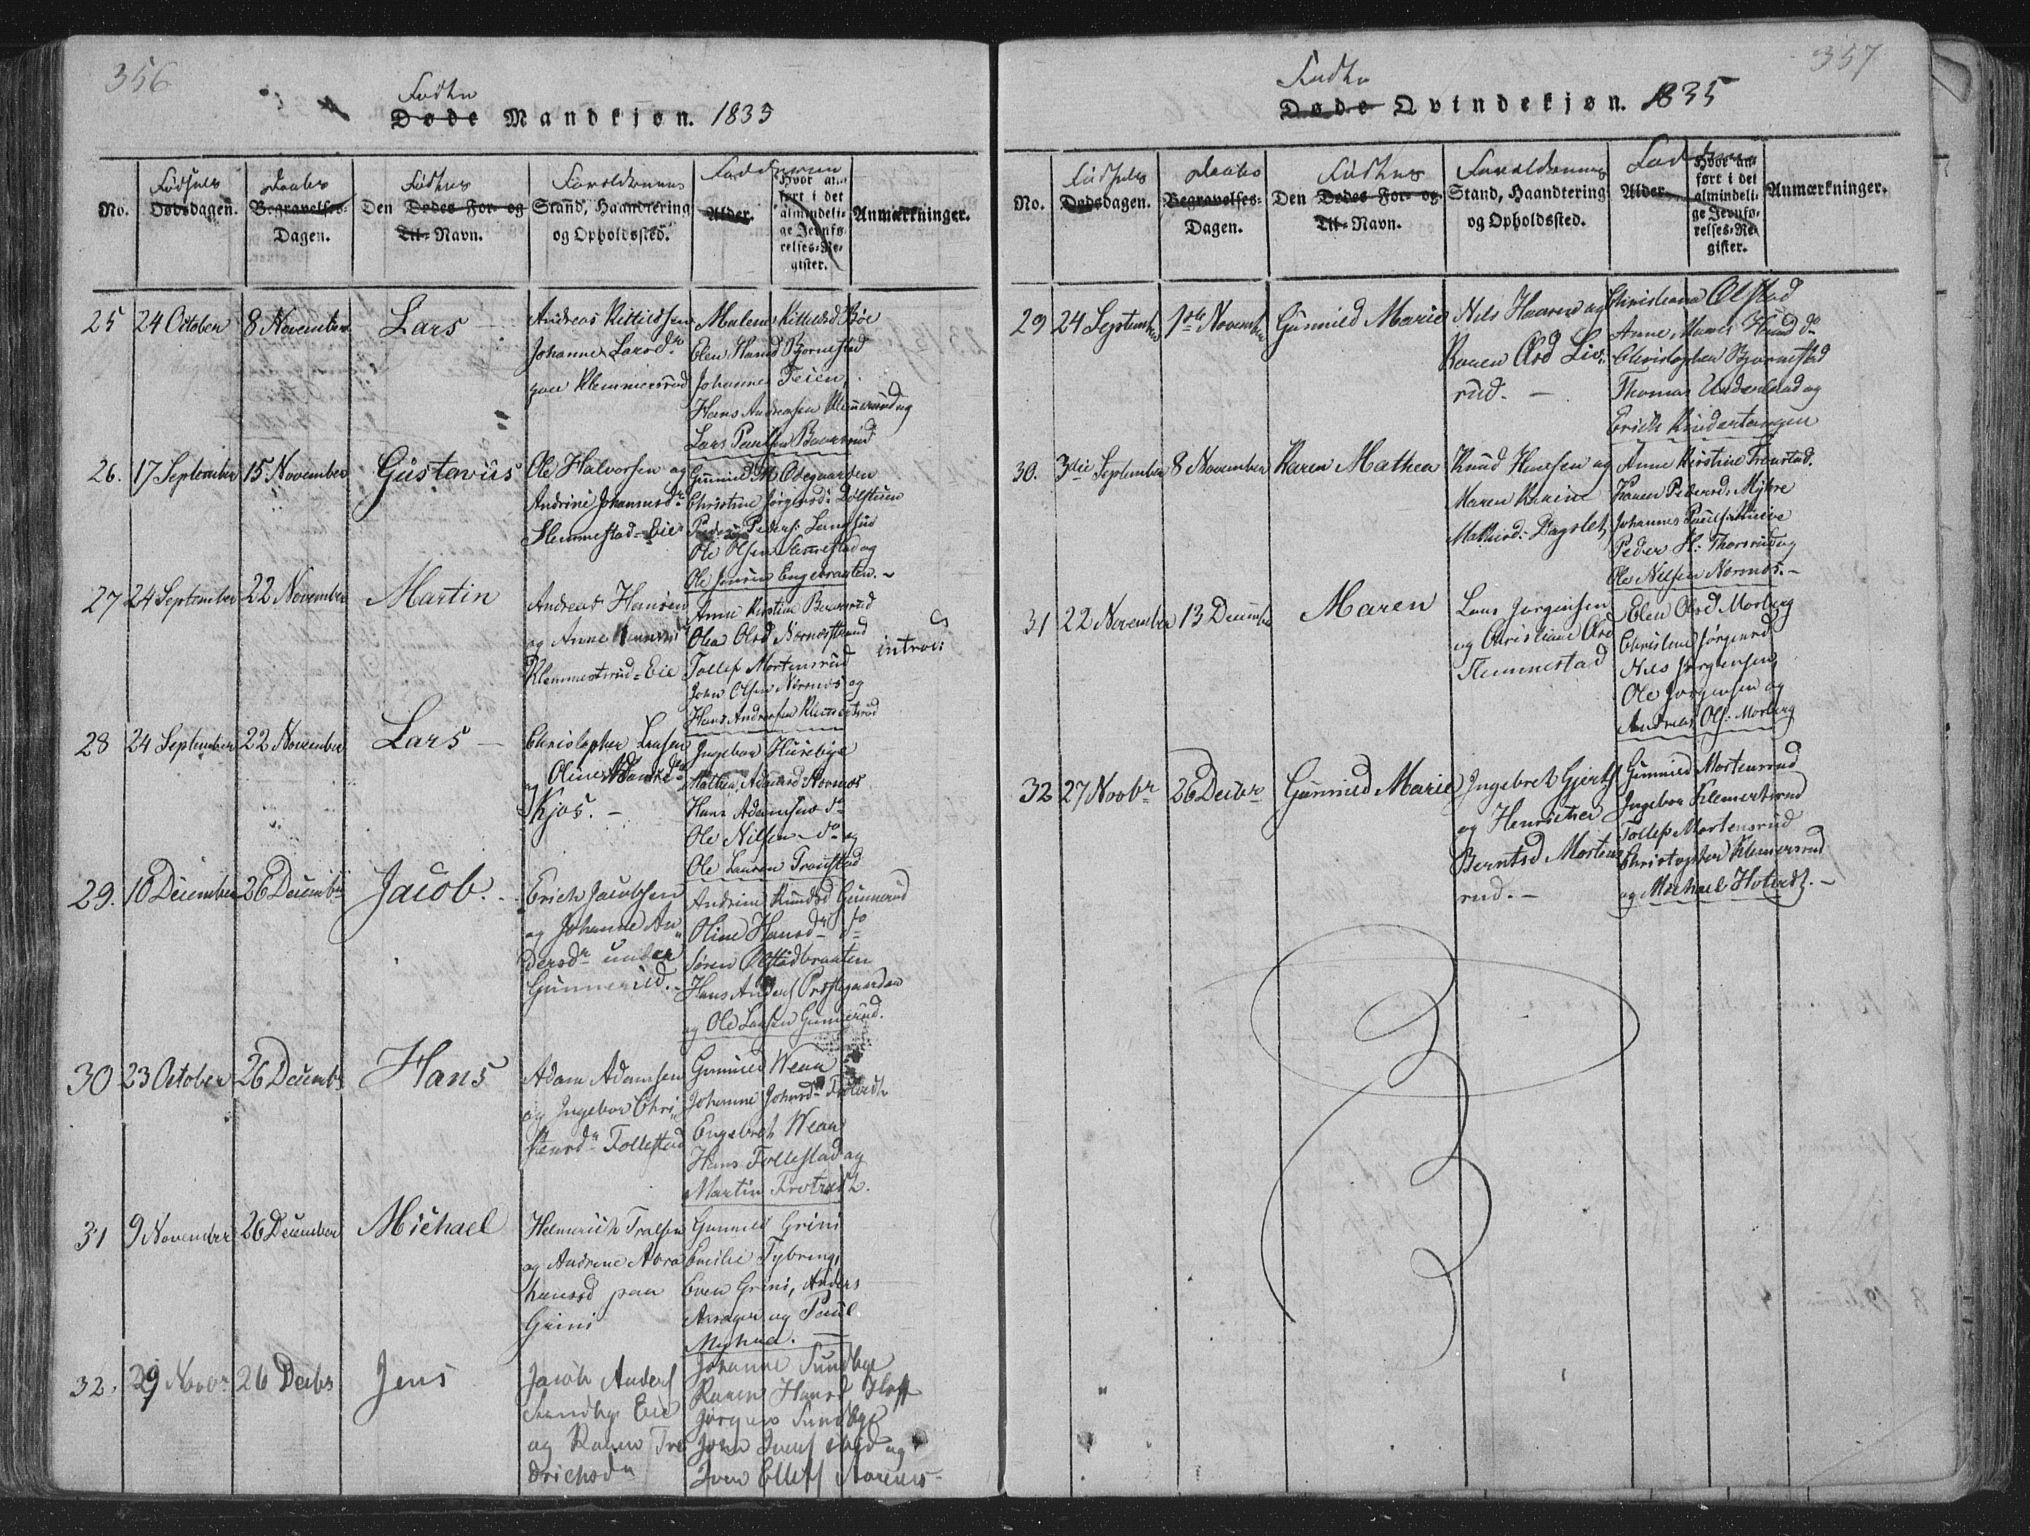 356
Fødte
Døde Mandkjøn. 1835
No.
Fødsels
Dødsdagen.
Daabs
Begravelses-
Dagen.
Fødtes
Den Dødes For- og
Til-Navn.
Forældrenes
Stand, Haandtering
og Opholdssted.
Fadderne
Alder.
Hvor an-
ført i det
almindeli-
ge Jevnfø-
relses-Re-
gister.
Anmærkninger.
25 24 October 8 November Lars
Andreas Kittilssen
Johanne Larsdr
paa Klemmetsrud
Malene Kittilsd Bøe
Elen Hansd Bjørnstad
Johannes Teien,
Hans Andreasen Klemmetsrud og
Lars Paulsen
26. 17 September 15 November Gustavus
Ole Halvorsen og
Andrine Johannesdr
Slemmestad-Eie
Gunnild M. Ødegaarden
Christine Jørgensd:
Peder Peders:
Ole Olsen Slemestad og
Ole Jensen Engebraaten.
27 24 September 22 November Martin
Andreas Hansen
og Anne
Klemmetsrud-Eie
Anne Kirstine
Olea Olsd Nærnæsstrand
Tollef Mortensrud
John Olsen Nærnæs og
Hans Andreasen Klemetsrud
introd:
28 24 September 22 November Lars
Christopher Larsen
og Oline Adamsdr
Kjos.
Ingebor Huseby
Mathea Adamsd Nærnæs
Hans Adamsen do
Ole Nilsen do og
Ole Larsen Tronstad
29. 10 December 26 Decembr Jacob.
Erich Jacobsen
og Johanne An
dersdr under
Gunnerud.
Andrine Knudsd Gunnerud
Oline Hansdr do
Søren Olstadbraaten
Hans Anders Præstegaarden
og Ole Larsen Gunnerud.
30 23 October 26 Decemb Hans
Adam Adamsen
og Ingebor Chri
stensdr Follestad
Gunnild Wean
Johanne Johnsdr
Engebret Wean
Hans Follestad og
Martin
31 9 November 26 December Michael
Helmerich Tralsen
og Andrine Abra
hamsd paa
Grini
Gunnild Grini
Emilie Tybring,
Even Grini, Anders
og Paul
32. 29 Novbr 26 Decbr Jens
Jacob Anders
Sundby Eie
og Karen Fre
drichsdr
Johanne Sundbye
Karen Hansd
Jørgen Sundbye
og
Iver Ellefs Nærnes
357
Fødte
Døde Qvindekjøn. 1835
No.
Fødsels
Dødsdagen.
Daabs
Begravelses-
Dagen.
Fødtes
Den Dødes For- og
Til-Navn.
Forældrenes
Stand, Haandtering
og Opholdssted.
Fadderne
Alder.
Hvor an-
ført i det
almindeli-
ge Jevnfø-
relses-Re-
gister.
Anmærkninger.
29 24 September 1ste November Gunnild Marie
Nils Haarens og
Karen Olsd Lie-
rud.
Christiana Olstad
Anne Marie
Christopher Bjørnstad
Thomas Underland og
Erich Kindertangen
30. 3die September 8 November Karen Mathea
Knud Hansen og
Maren Karine
Mathisd: Dagslet
Anne Kirstine Tronstad.
Karen Pedersd: Myhre
Johannes Paulsen
Peder H: Thorsrud og
Ole Nilsen Nærnæs.
31 22 November 13 Decembr Maren
Lars Jørgensen
og Christiane Olsd
Slemmestad
Elen Olsd Morberg
Christine Jørgensd
Nils Jørgensen,
Ole Jørgensen og
Andreas Ols: Morberg
32 27 Novbr 26 Decbr Gunnild Marie
Ingebret Gjerts
og Henriche
Berntsd Mortens
rud.
Gunnild Mortensrud
Ingebor Klemmetsrud
Tollef Mortensrud
Christopher Klemetsrud
og Michael